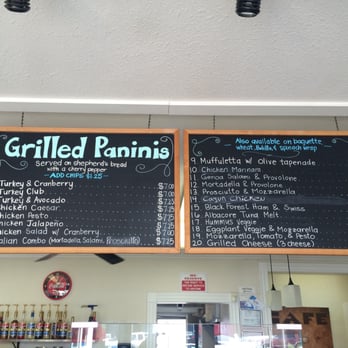 Grilled Paninis
Served on shepherd's bread
with a cherry pepper
ADD CHIPS $1.25
Turkey & Cranberry $7.00
Turkey Club $7.00
Turkey & Avocado $7.25
Chicken Caesar $7.25
Chicken Pesto $7.25
Chicken Jalapeño $7.25
Chicken Salad w/ Cranberry $7.00
Italian Combo (Mortadella, Salami, Prosciutto) $7.25
Also available on baguette
wheat, spinach wrap
9 Muffuletta w/ olive tapenade
10 Chicken Marinara
11 Genoa Salami & Provolone
12 Mortadella & Provolone
13 Prosciutto & Mozzarella
14 Cajun Chicken
15 Black Forest Ham & Swiss
16 Albacore Tuna Melt
17 Hummus Veggie
18 Eggplant Veggie & Mozzarella
19 Mozzarella, Tomato, & Pesto
20 Grilled Cheese (3 cheese)
CAFE